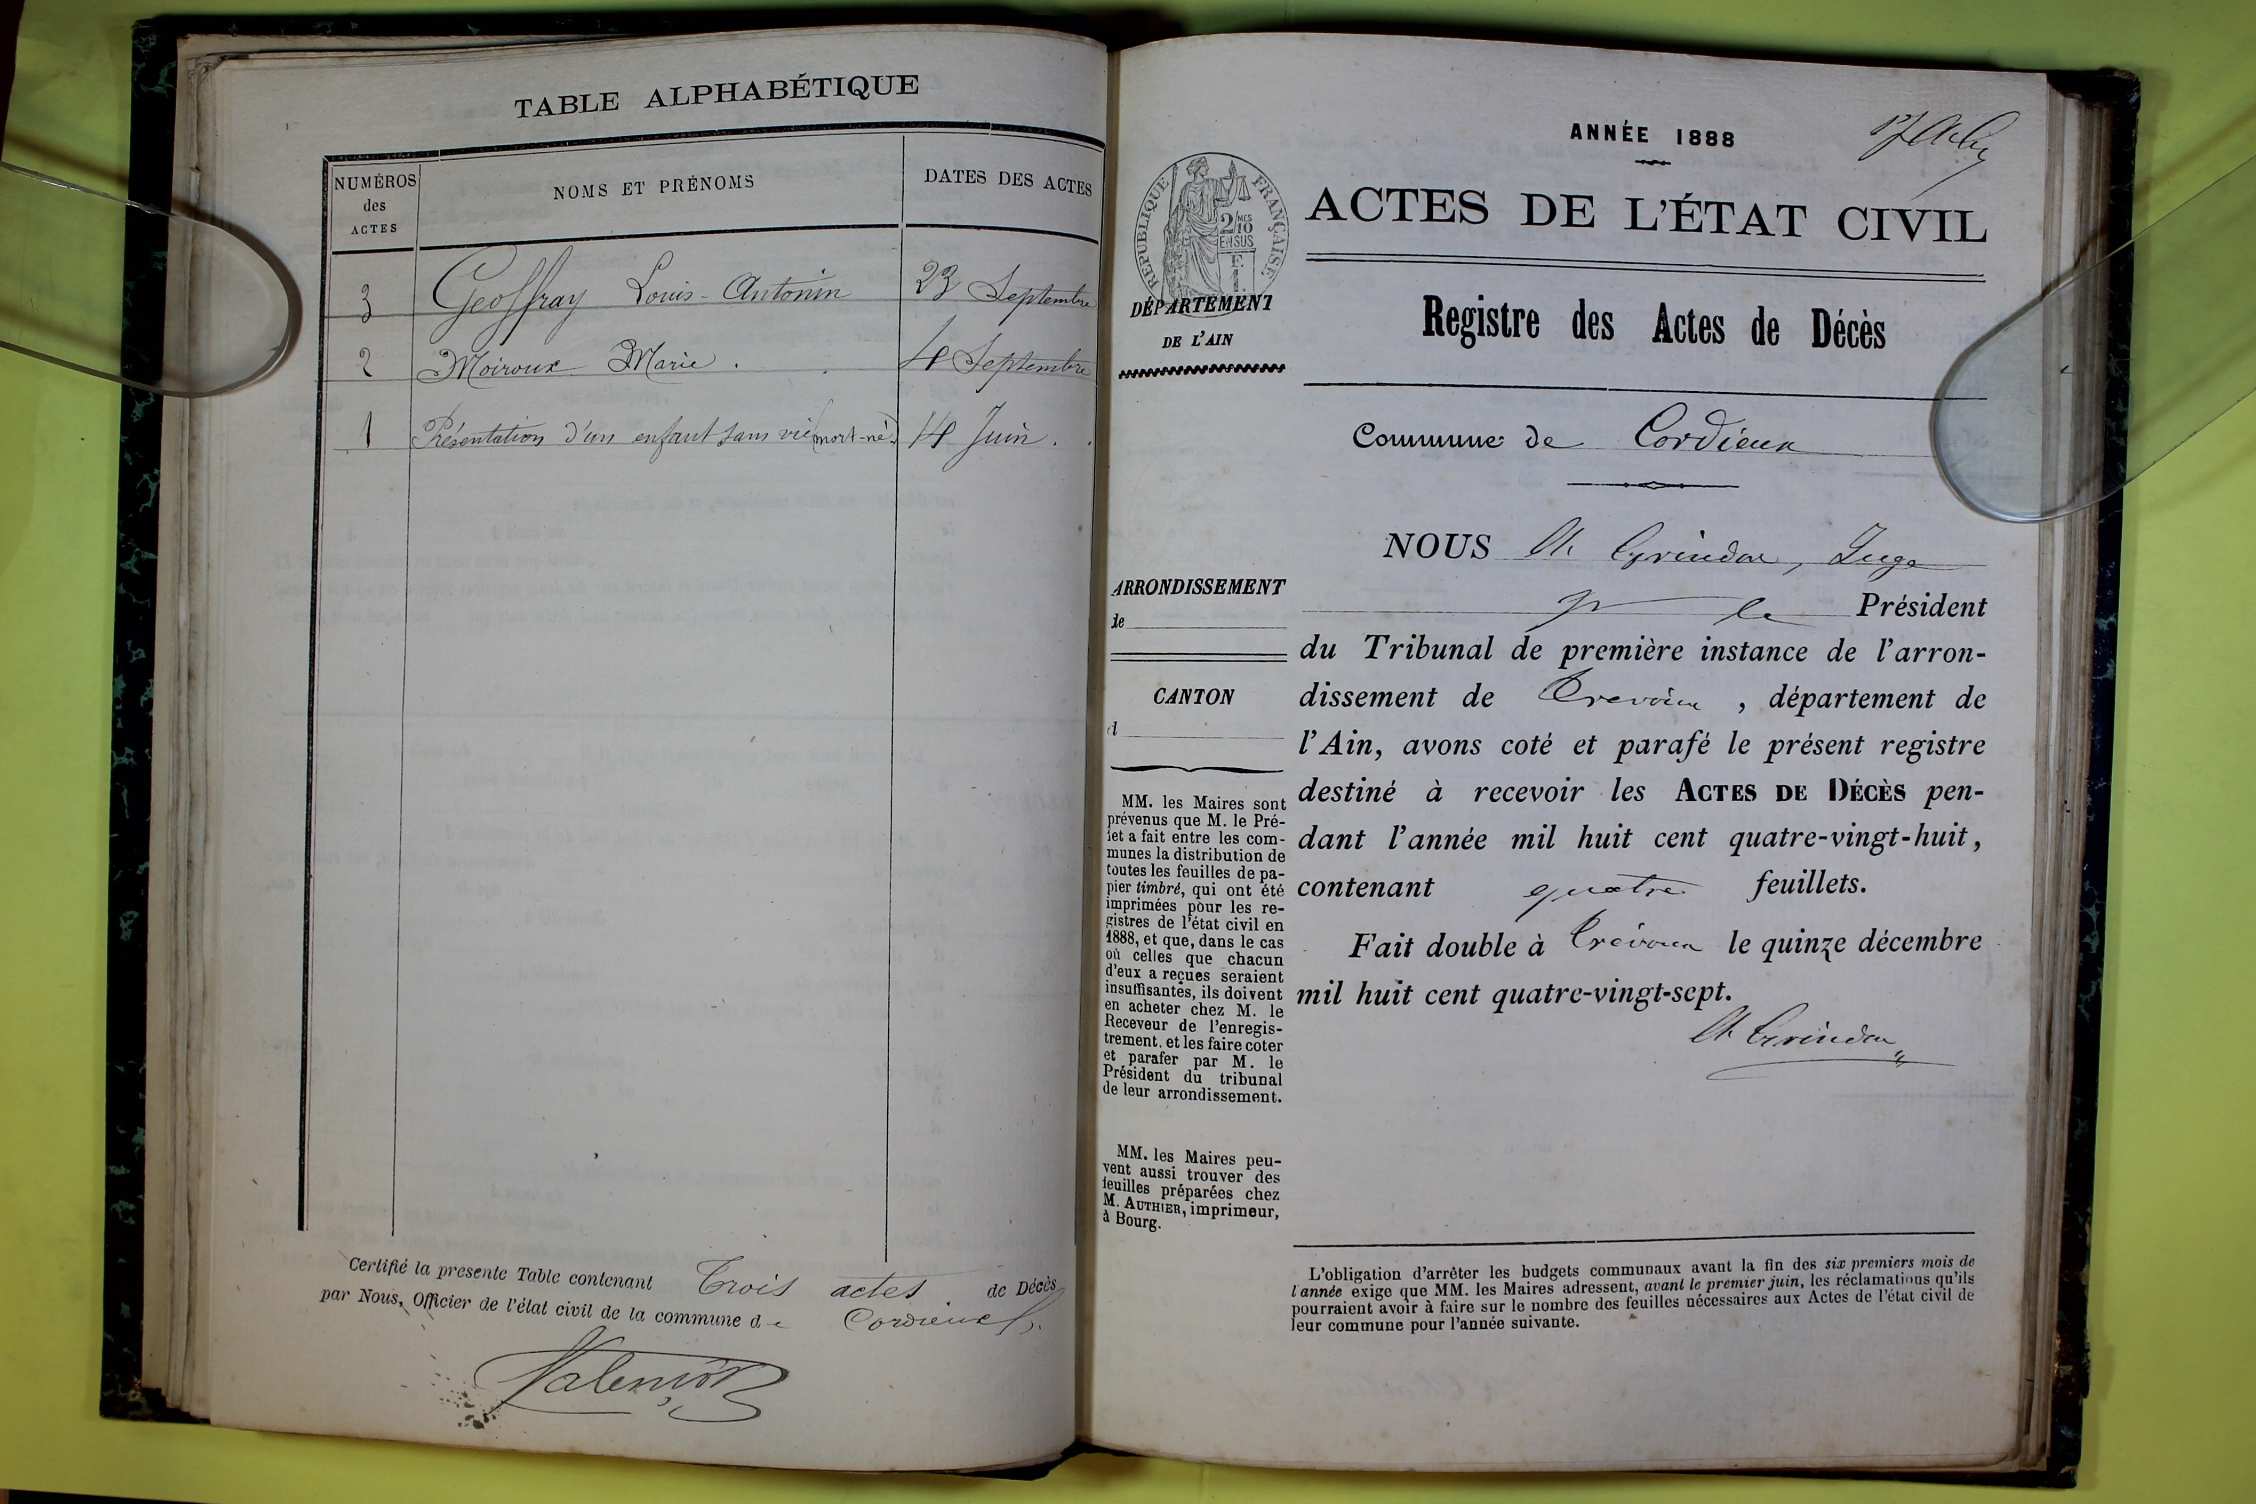 TABLE ALPHABÉTIQUE
NUMÉROS des ACTES
NOMS ET PRÉNOMS
DATES DES ACTES
3 Geoffray Louis-Antonin 23 Septembre
2 Moiroux Marie. 4 Septembre
1 Présentation d'un enfant sans vie (mort-né). 14 Juin.
Certifié la présente Table contenant Trois actes de Décès
par Nous, Officier de l'état civil de la commune de Cordieux.
RÉPUBLIQUE FRANÇAISE
2/10 MES
EN SUS
DÉPARTEMENT
DE L'AIN
ARRONDISSEMENT
de
CANTON
d
MM. les Maires sont
prévenus que M. le Pré-
fet a fait entre les com-
munes la distribution de
toutes les feuilles de pa-
pier timbré, qui ont été
imprimées pour les re-
gistres de l'état civil en
1888, et que, dans le cas
où celles que chacun
d'eux a reçues seraient
insuffisantes, ils doivent
en acheter chez M. le
Receveur de l'enregis-
trement, et les faire coter
et parafer par M. le
Président du tribunal
de leur arrondissement.
MM. les Maires peu-
vent aussi trouver des
feuilles préparées chez
M. AUTHIER, imprimeur,
à Bourg.
ANNÉE 1888
ACTES DE L'ÉTAT CIVIL
Registre des Actes de Décès
Commune de Cordieux
NOUS Grindon, Juge
pr le Président
du Tribunal de première instance de l'arron-
dissement de Trévoux, département de
l'Ain, avons coté et parafé le présent registre
destiné à recevoir les ACTES DE DÉCÈS pen-
dant l'année mil huit cent quatre-vingt-huit,
contenant quatre feuillets.
Fait double à Trévoux le quinze décembre
mil huit cent quatre-vingt-sept.
Grindon
L'obligation d'arrêter les budgets communaux avant la fin des six premiers mois de
l'année exige que MM. les Maires adressent, avant le premier juin, les réclamations qu'ils
pourraient avoir à faire sur le nombre des feuilles nécessaires aux Actes de l'état civil de
leur commune pour l'année suivante.